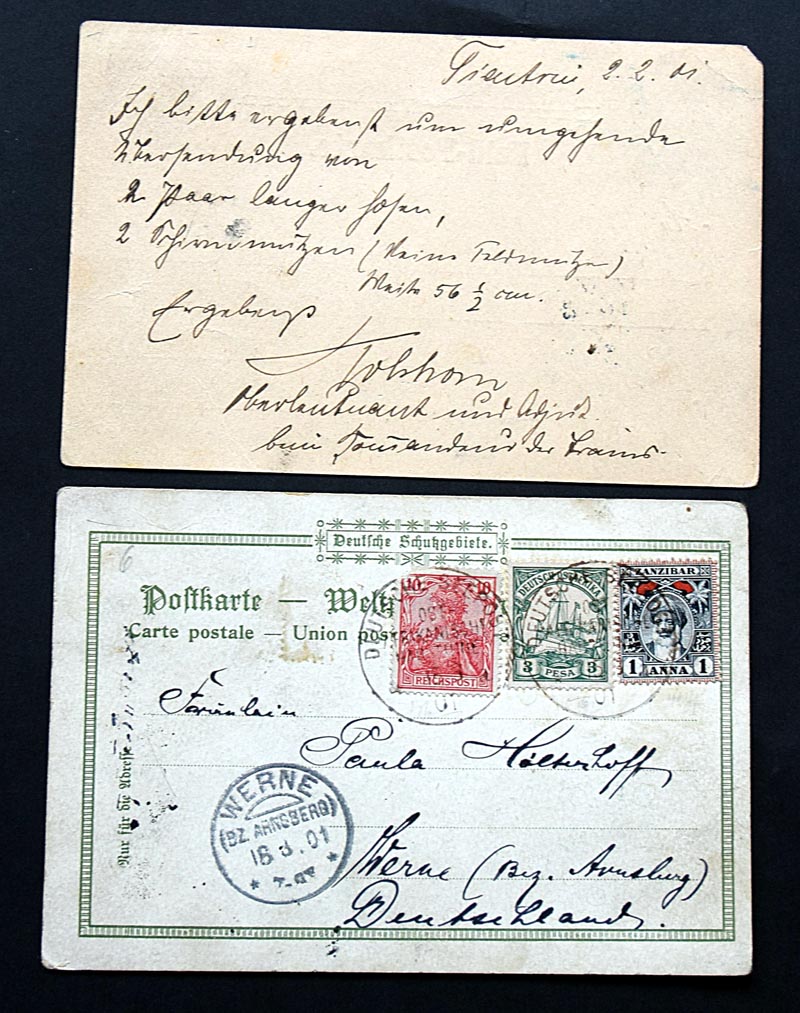 Tientsin, 2. 2. 01.
Ich bitte ergebenst um umgehende
Übersendung von
2 Paar langer Hosen,
2 Schirmmützen (keine Feldmütze)
Weite 56 1/2 cm.
Ergebenst
Oberleutnant und Adjut.
beim Komandeur der Trains.
6
Deutsche Schutzgebiete.
Postkarte — Welt
Carte postale — Union post
10 10
REICHSPOST
DEUTSCH-OSTAFRIKA
3 PESA 3
ZANZIBAR
1 ANNA 1
DEUTSCHE
OST
AFRIKANISCHE
01
Fräulein
Paula Hölterhoff
Nur für die Adresse
WERNE
(BZ. ARNSBERG)
18 3. 01
* 7-8V *
Werne (Bez. Arnsberg)
Deutschland.